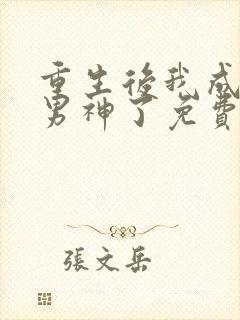 重生後我成
男神了免費
張文岳